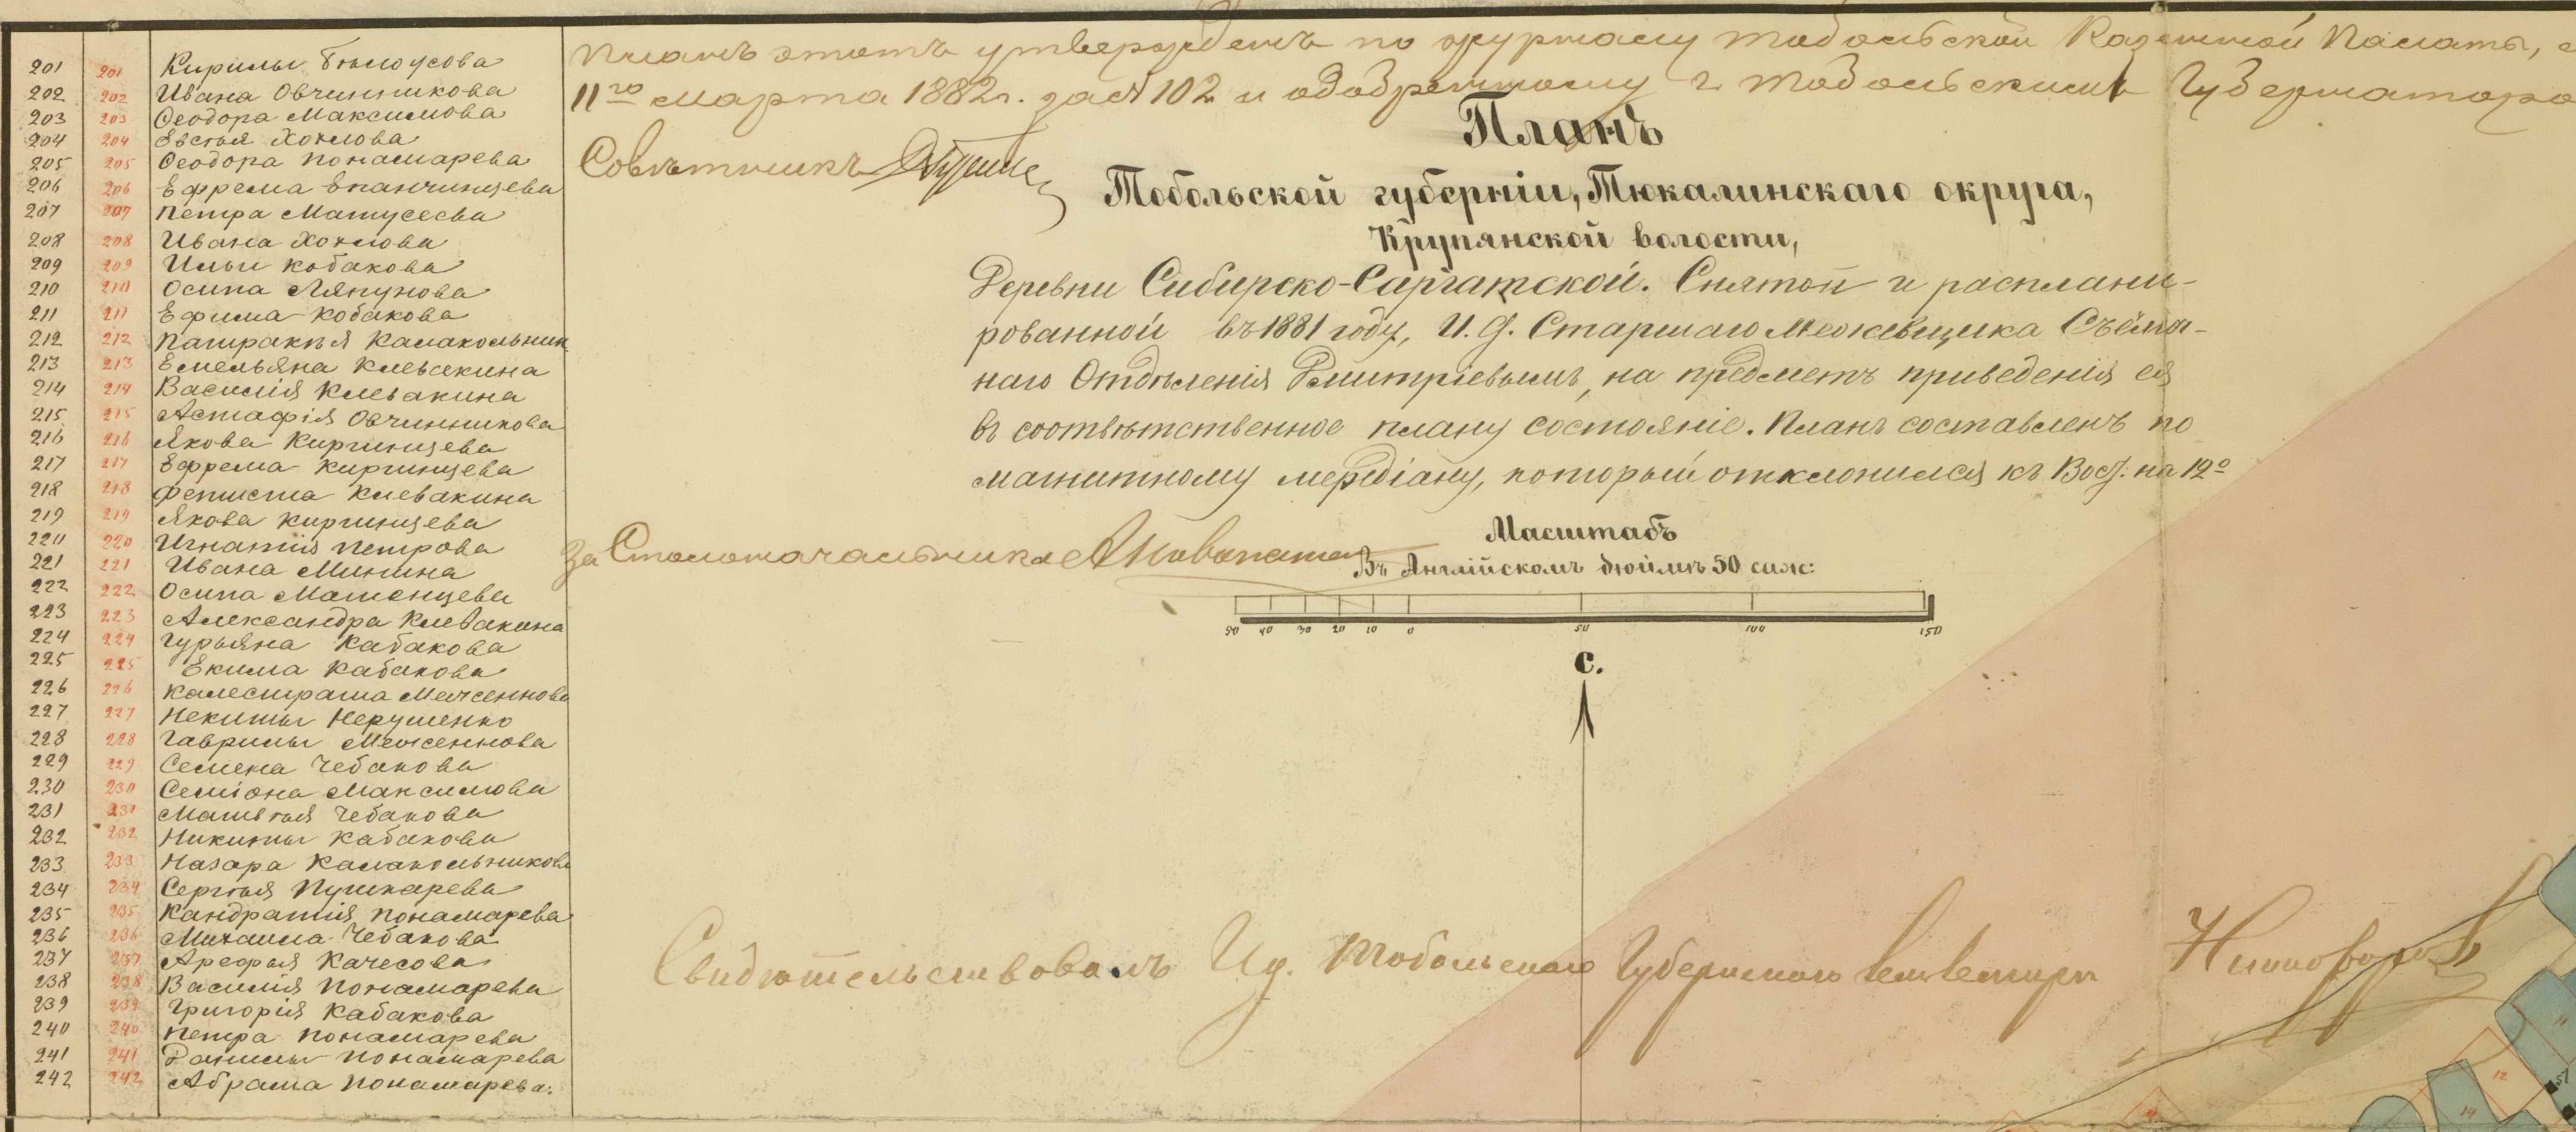 201 201 Кирилы Бѣлоусова
202 202 Ивана Овчинникова
203 203 Ѳеодора Максимова
204 204 Евстѣя Хохлова
205 205 Ѳеодора Понамарева
206 206 Ефрема Епанчинцева
207 207 Петра Матусеева
208 208 Ивана Хохлова
209 209 Ильи Кобакова
210 210 Осипа Ляпунова
211 211 Ефима Кобакова
212 212 Патракѣя Калакольник
213 213 Емельяна Клевакина
214 214 Василія Клевакина
215 215 Астафія Овчинникова
216 216 Якова Киргинцева
217 217 Ефрема Киргинцева
218 218 Клевакина
219 219 Якова Киргинцева
220 220 Игнатія Петрова
221 221 Ивана Минина
222 222 Осипа
223 223 Александра Клевакина
224 224 Гурьяна Кабакова
225 225 Екима Кабакова
226 226
227 227 Некиты Нерушенко
228 228 Гаврилы Меженнова
229 229 Семена Чебакова
230 230 Семіона Максимова
231 231 Матвѣя Чебакова
232 232 Никиты Кабакова
233 233 Назара Калакольникова
234 234 Сергѣя Пушкарева
235 235 Кандратія Понамарева
236 236 Михаила Чебакова
237 237 Арефья Качесова
238 238 Василія Понамарева
239 239 Григорія Кабакова
240 240 Петра Понамарева
241 241 Данилы Понамарева
242 242 Абрама Понамарева.
Планъ этотъ утвержденъ по журналу Тобольской Казенной Палаты,
11го Марта 1882 г. за № 102 и одобренному г. Тобольскимъ Губернаторо
Совѣтникъ
Планъ
Тобольской губерніи, Тюкалинскаго округа,
Крупянской волости,
Деревни Сибирско-Саргатской. Снятой и расплани-
рованной въ 1881 году, И. д. Старшаго Межевщика Съёмоч-
наго Отдѣленія Дмитріевымъ, на предметъ приведенія ея
въ соотвѣтственное плану состояніе. Планъ составленъ по
магнитному мередіану, который отклонился къ Вост. на 12º
За Столоначальника
Масштабъ
Въ Англійскомъ дюймѣ 50 саж:
50 40 30 20 10 0 50 100 150
С.
Свидѣтельствовалъ И д. Тобольскаго Губернскаго Землемѣра
11
12
14
51